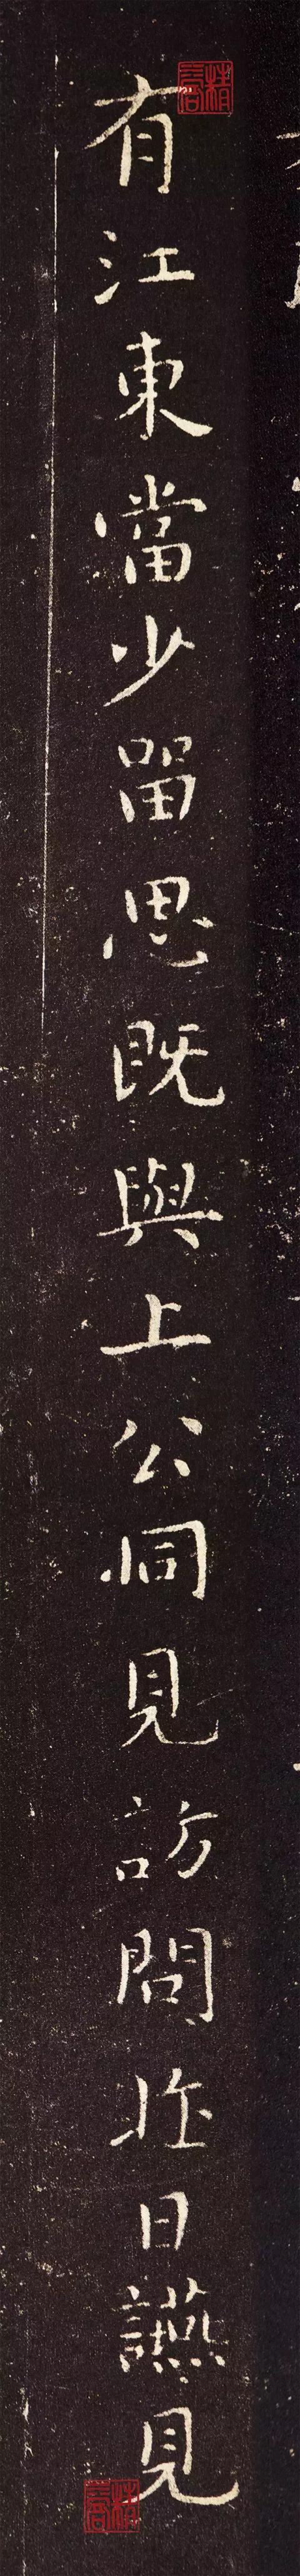 有江東當少留思既與上公同見訪問昨日讌見